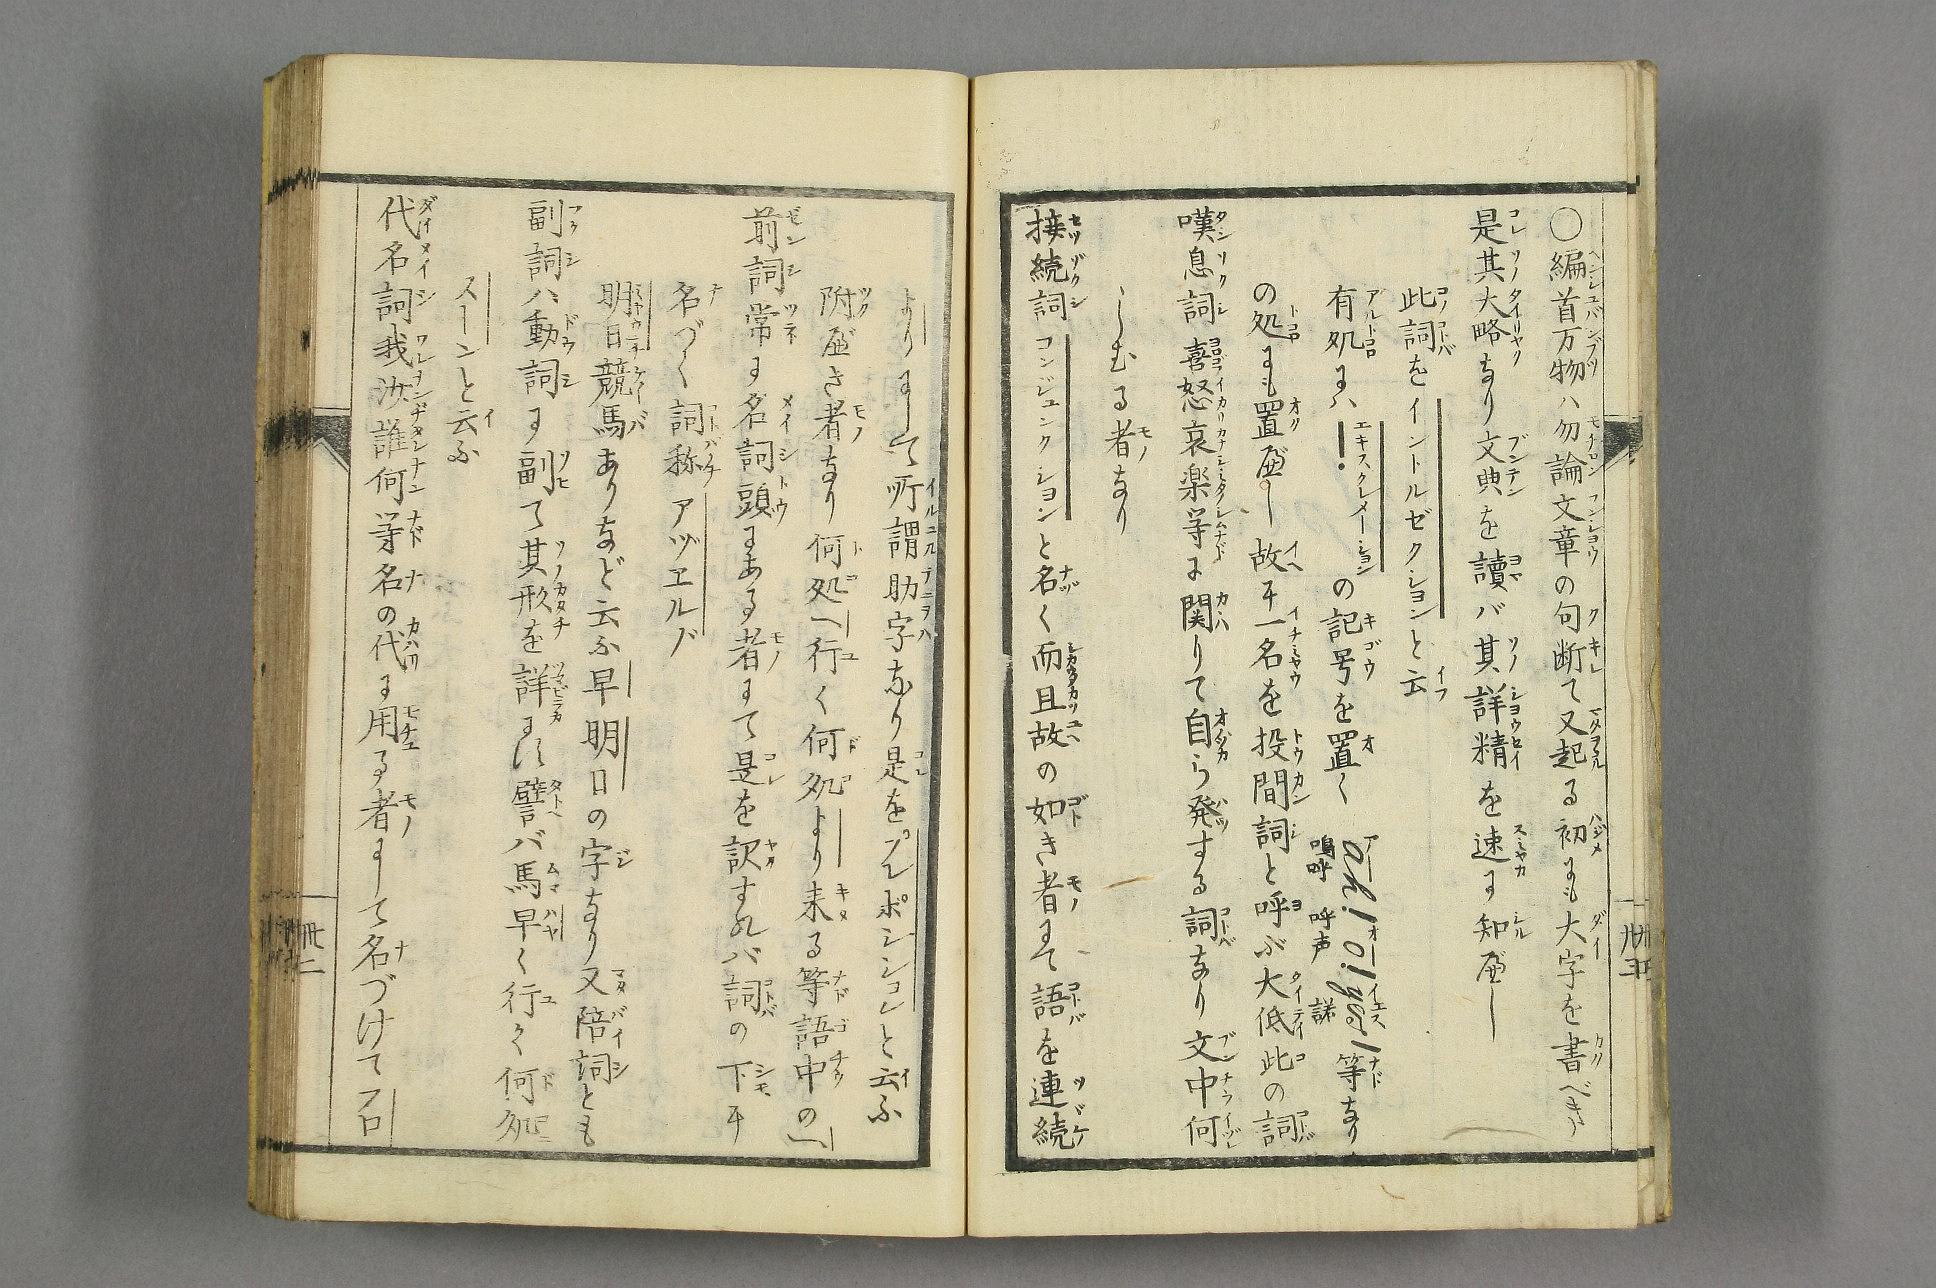 ○編首万物ハ勿論文章の句断て又起る初にも大字を書べき
是其大略なり文典を讀バ其詳精を速に知べし
此詞をイントルゼクションと云
有処にハ！エキスクレメーションの記号を置く ah! o! yes! 等なり
嗚呼 呼声 諾
の処にも置べし故に一名を投間詞と呼ぶ大低此の詞
嘆息詞喜怒哀楽等に関りて自ら発する詞なり文中何
しむる者なり
接続詞コンジュンクションと名く而且故の如き者にて語を連続
よりにして所謂助字なり是をプレポジションと云ふ
附べき者なり何処へ行く何処より来る等語中のへ
前詞常に名詞頭にある者にて是を訳すれバ詞の下に
名づく詞称アヅエルブ
明日競馬ありなど云ふ早明日の字なり又陪詞とも
副詞ハ動詞に副て其形を詳にす譬バ馬早く行く何処
スーンと云ふ
代名詞我汝誰何等名の代に用る者にして名づけてプロ